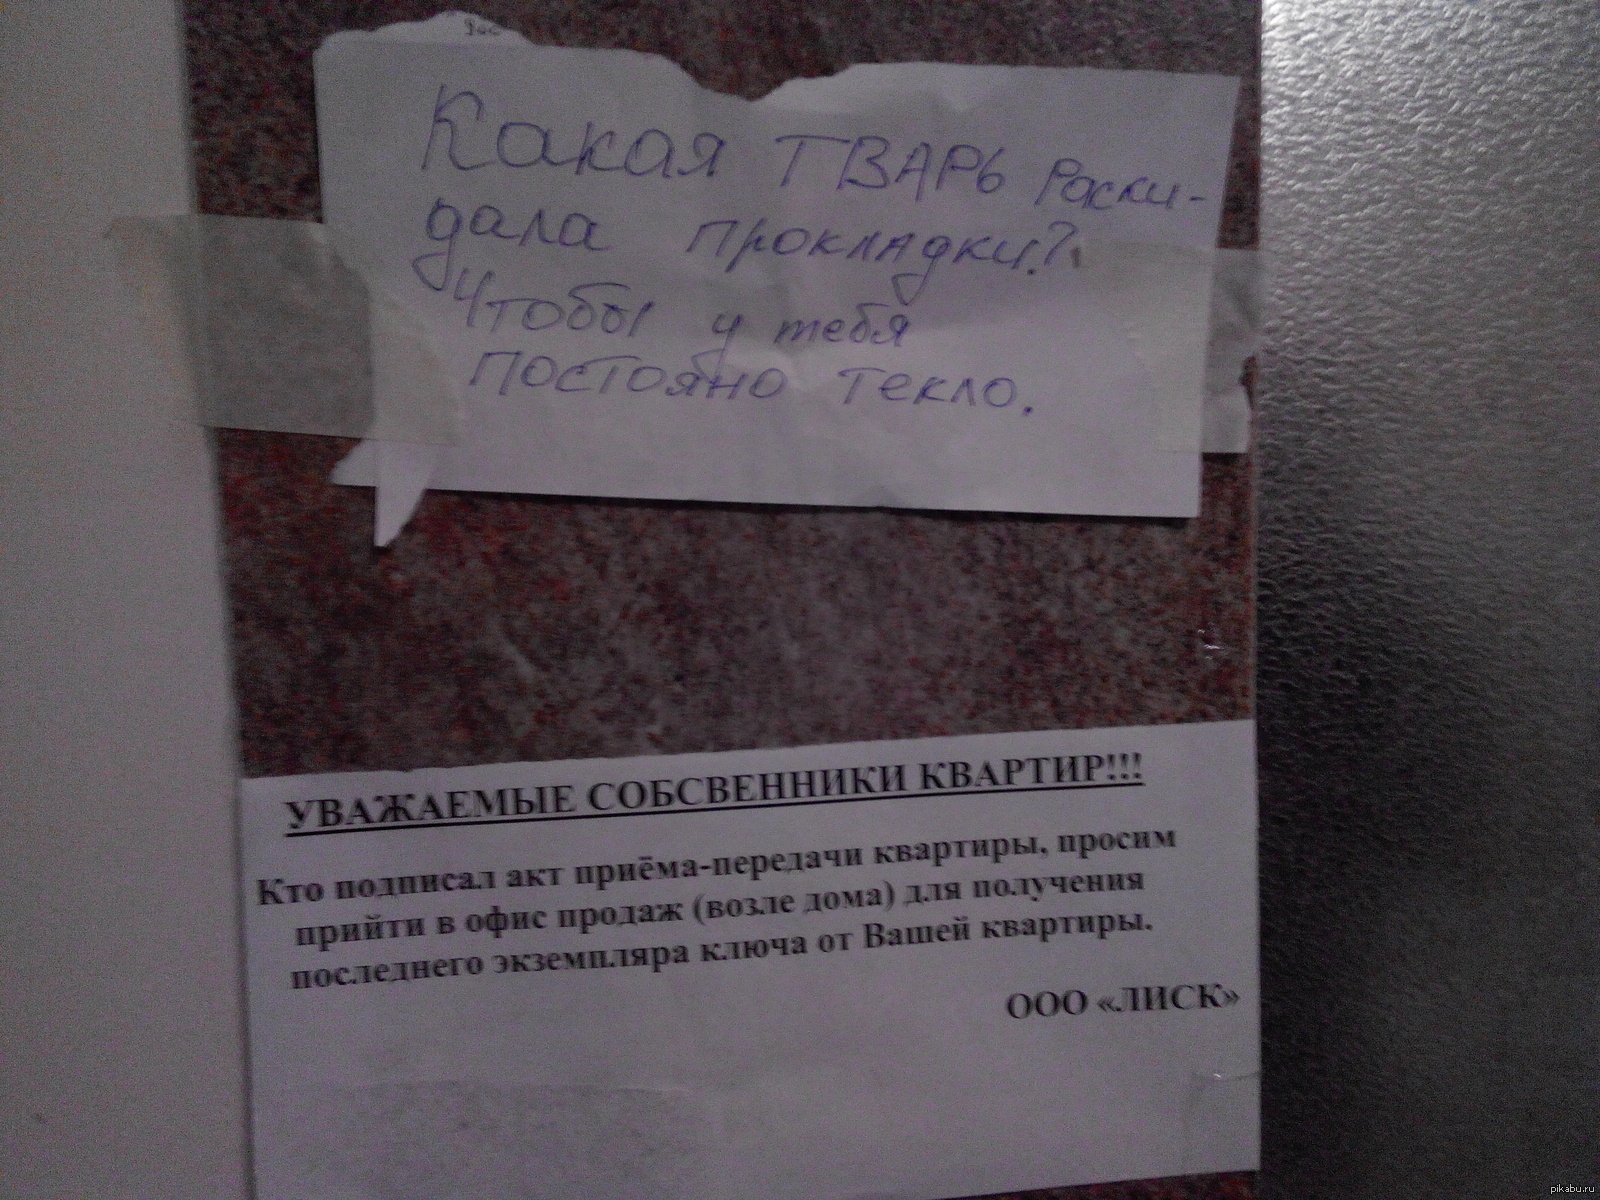 Какая ТВАРЬ Раски-
дала прокладки?
Чтобы у тебя
постояно текло.
УВАЖАЕМЫЕ СОБСВЕННИКИ КВАРТИР!!!
Кто подписал акт приёма-передачи квартиры, просим
прийти в офис продаж (возле дома) для получения
последнего экземпляра ключа от Вашей квартиры.
ООО «ЛИСК»
pikabu.ru